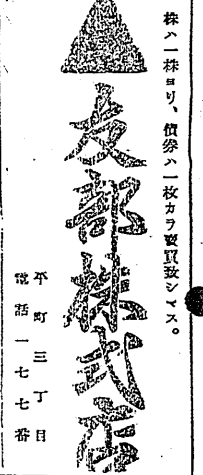 株ハ一株ヨリ、債券ハ一枚カラ賣買致シマス。
友部株式店
平町三丁目
電話一七七番